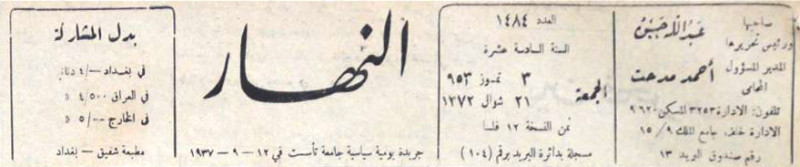 صاحبها
ورئيس تحريرها
عبدالله حسن
المدير المسؤول
المحامي
أحمد مدحت
تلفون: الادارة ٣٢٥٣ المسكن ٩٦٢٠
الادارة خلف جامع الملك ١٥/٩
رقم صندوق البريد ١٣
العدد ١٤٨٤
السنة السادسة عشرة
الجمعة
٣ تموز ٩٥٣
٢١ شوال ١٣٧٢
ثمن النسخة ١٢ فلسا
مسجلة بدائرة البريد برقم (١٠٤)
النهار
جريدة يومية سياسية جامعة تأسست في ١٢ - ٩ - ١٩٣٧
بدل المشاركة
في بغداد ٤/٠٠ دنانير
في العراق ٤/٥٠٠ د
في الخارج ٥/٠٠ د
مطبعة شفيق - بغداد